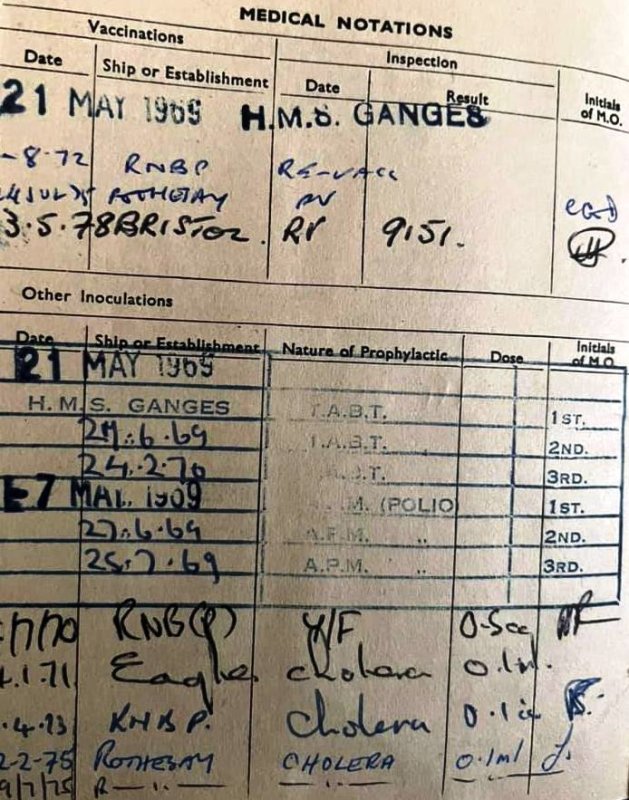 MEDICAL NOTATIONS
Vaccinations Inspection
Date Ship or Establishment Date Result Initials of M.O.
21 MAY 1969 H.M.S. GANGES
-8-72 RNBP RE-VACC
JUL 75 ROTHESAY RV
3.5.78 BRISTOL. RV 9151.
Other Inoculations
Date Ship or Establishment Nature of Prophylactic Dose Initials of M.O.
21 MAY 1969
H.M.S. GANGES T.A.B.T. 1ST.
6.69 T.A.B.T. 2ND.
24.2.70 3RD.
1969 M. (POLIO) 1ST.
27.6.69 A.P.M. ,, 2ND.
25.7.69 A.P.M. ,, 3RD.
/7/70 RNB(P) Y/F 0.5cc
.1.71 Eagle cholera 0.1ml.
.4.73 RNBP. Cholera 0.1
2-2-75 ROTHESAY CHOLERA 0.1ml
9/7/75 R — " — — " — — " —